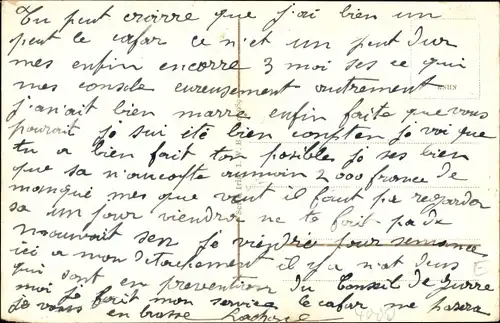 Tu peut croirre que j'ai bien un
peut le cafar ce n'et un peut dur
mes enfin encorre 3 moi ses ce qui
mes console eureusement autrement
j'anait bien marre enfin faite que vous
pourait je sui été bien conpten je voi que
tu a bien fait ton posible je ses bien
que sa n'aucoute aumoin 2000 france de
manque mes que veut il faut pa regarder
sa un jour viendra ne te fait pa de
mauvait sen je viendré pour semaines
ici a mon détachement il y a n'at deus
qui sont en prevention du Conseil de Guerre
moi je fait mon service le cafar me
je vous en brasse